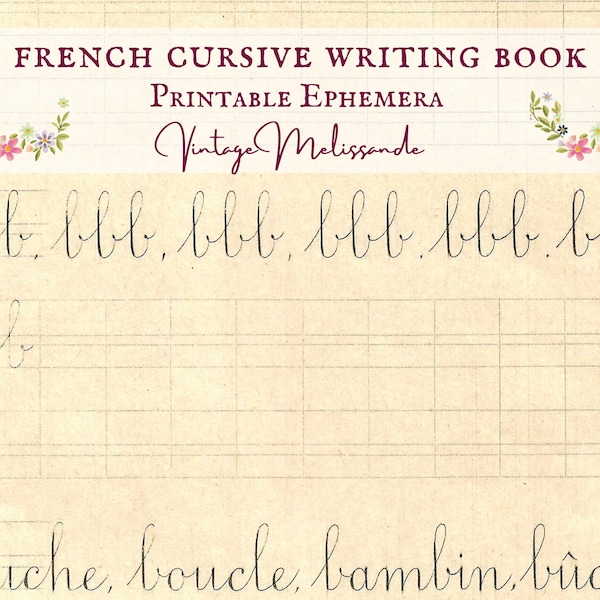 FRENCH CURSIVE WRITING BOOK
PRINTABLE EPHEMERA
VintageMelissande
b, bbb, bbb, bbb. bbb. b
b
uche, boucle, bambin, bûc